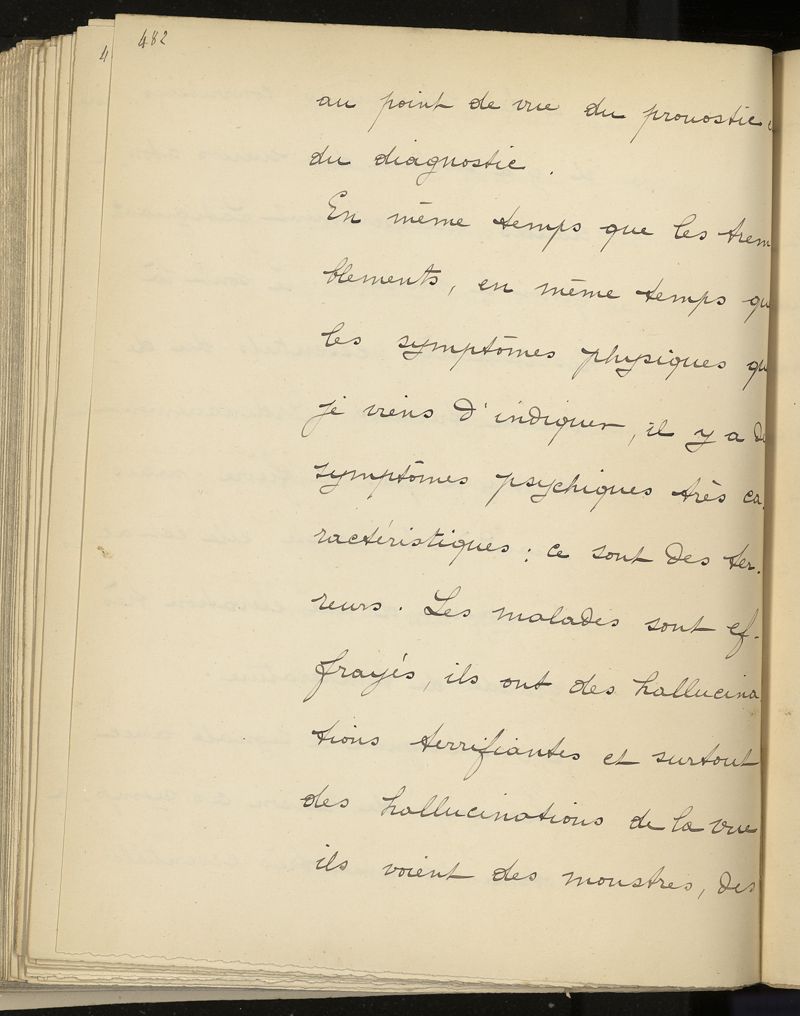 482
au point de vue du pronostic
du diagnostic.
En même temps que les trem
blements, en même temps qu
les symptômes physiques qu
je viens d'indiquer, il y a de
symptômes psychiques très ca-
ractéristiques : ce sont des ter-
reurs. Les malades sont ef-
frayés, ils ont des hallucina
tions terrifiantes et surtout
des hallucinations de la vue
ils voient des monstres, des